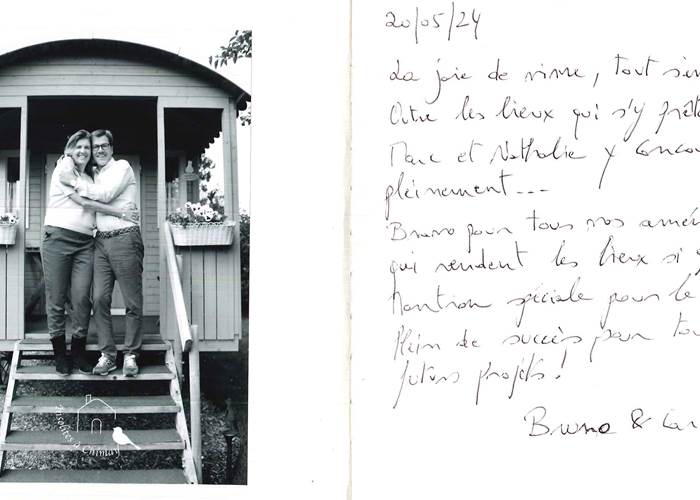 Insolites à Chimay
20/05/24
La joie de vivre, tout sim
Outre les lieux qui s'y prêt
Marc et Nathalie y concou
pleinement...
Bravo pour tous vos amén
qui rendent les lieux si
Mention spéciale pour le
Plein de succès pour tou
futurs projets!
Bruno & Car